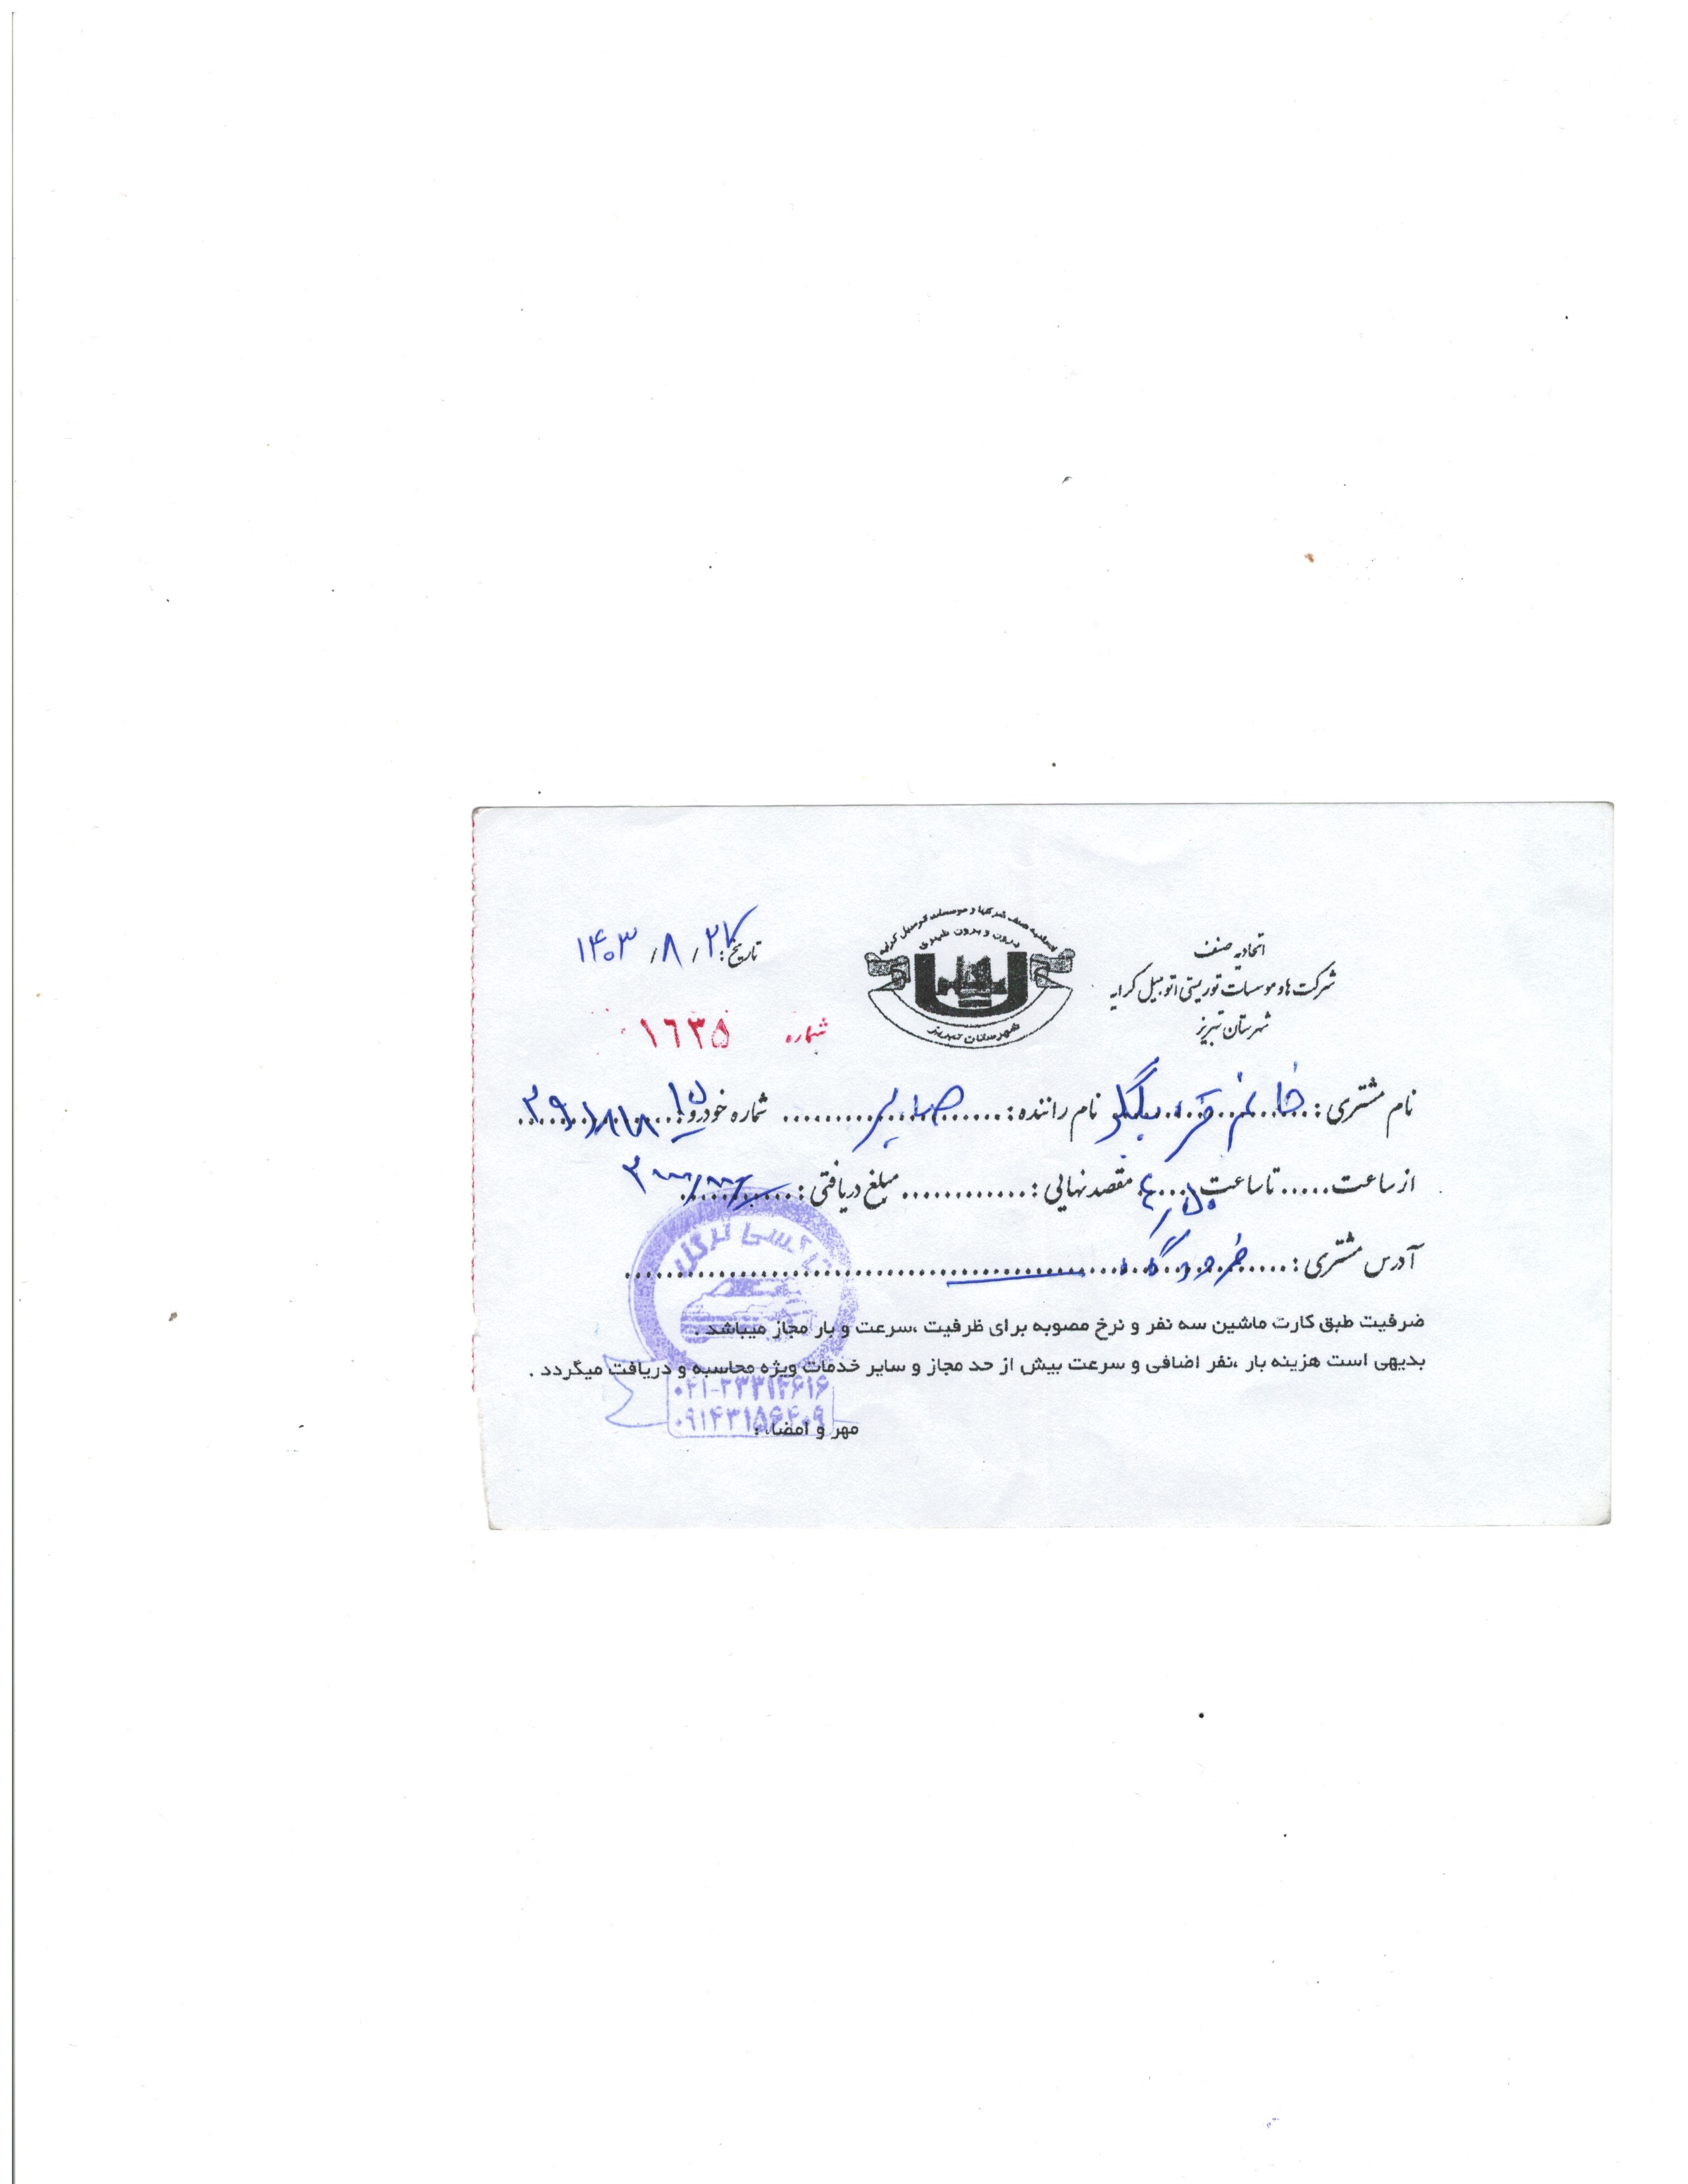 اتحادیه صنف
شرکت ها و موسسات توریستی اتومبیل کرایه
شهرستان تبریز
درون و برون شهری
شهرستان تبریز
تاریخ: ۱۴۰۳/۸/۲۷
شماره ۱۶۳۵
نام مشتری: خانم قره بیگلو نام راننده: صابر شماره خودرو:
از ساعت..... تا ساعت ۴/۵۰ مقصد نهایی:............ مبلغ دریافتی:
آدرس مشتری: فرودگاه
ضرفیت طبق کارت ماشین سه نفر و نرخ مصوبه برای ظرفیت ،سرعت و بار مجاز میباشد .
بدیهی است هزینه بار ،نفر اضافی و سرعت بیش از حد مجاز و سایر خدمات ویژه محاسبه و دریافت میگردد .
مهر و امضاء :
تاکسی نرگل
۰۴۱-۳۳۳۱۴۶۱۶
۰۹۱۴۳۱۵۶۴۰۹